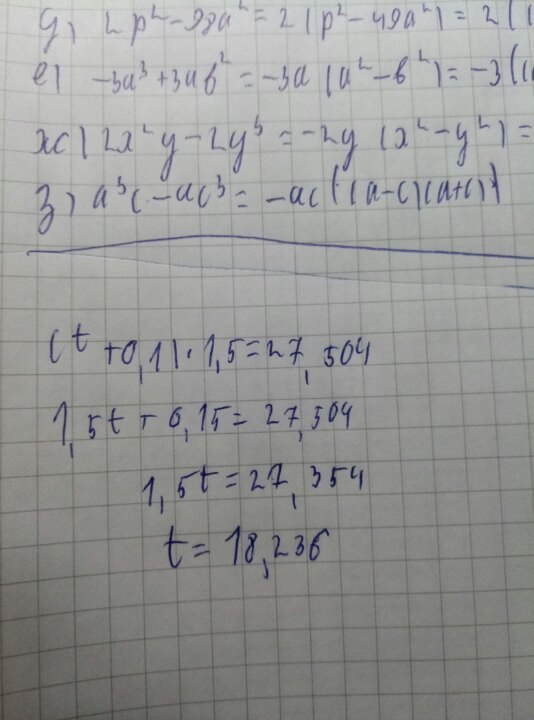 д) 2p²-98a² = 2(p²-49a²) = 2(
е) -3a³+3ab² = -3a(a²-b²) = -3(
ж) 2x²y-2y³ = -2y(x²-y²) =
з) a³c-ac³ = -ac((a-c)(a+c))
(t+0,1)·1,5=27,504
1,5t+0,15=27,504
1,5t=27,354
t=18,236